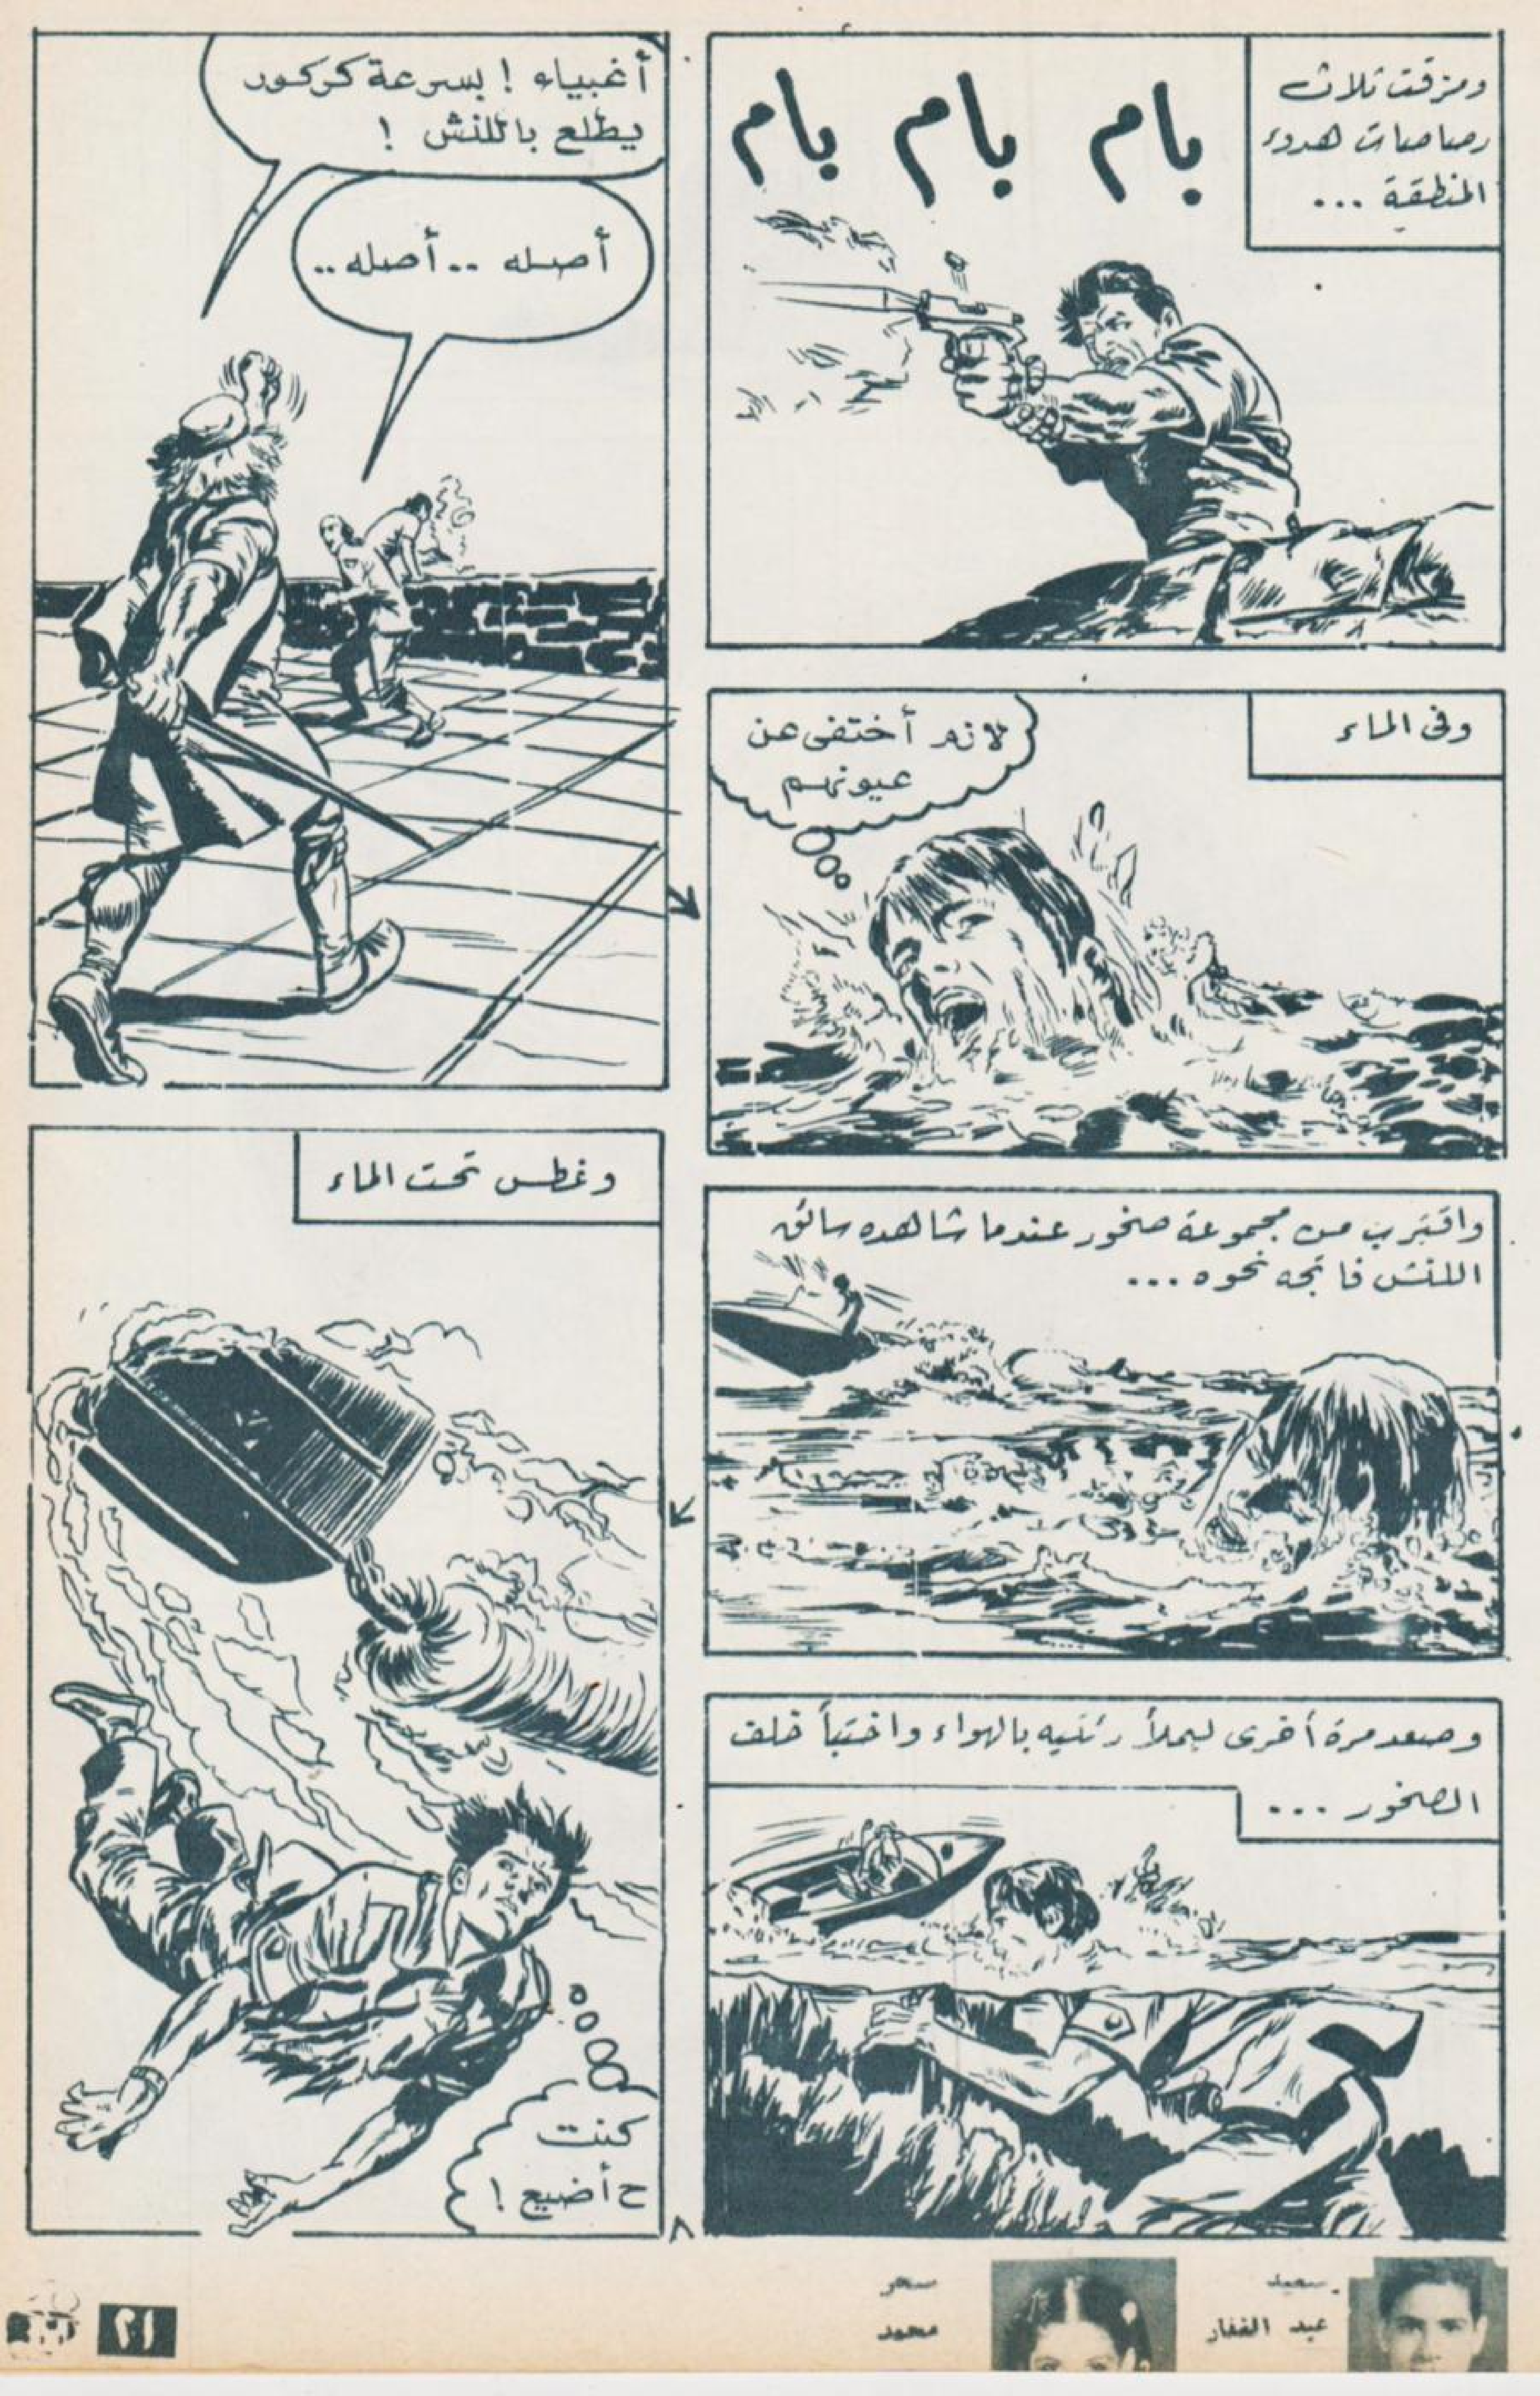 ومزقت ثلاث
رصاصات هدوء
المنطقة ...
بام بام بام
أغبياء ! بسرعة كركور
يطلع باللنش !
أصله .. أصله ..
وفى الماء
لازم أختفى عن
عيونهم
واقترب من مجموعة صخور عندما شاهده سائق
اللنش فاتجه نحوه ...
وغطس تحت الماء
كنت
ح أضيع !
وصعد مرة أخرى ليملأ رئتيه بالهواء واختبأ خلف
الصخور ...
٨
سعيد
عبد الغفار
سحر
محمد
٢١